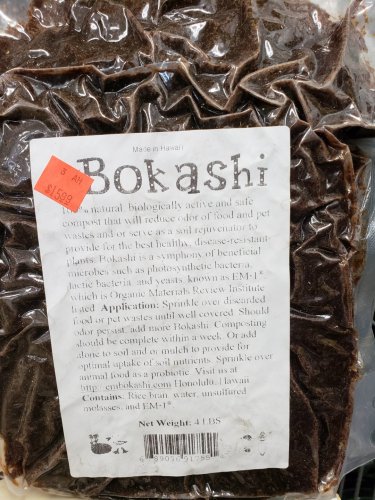 Made in Hawaii
Bokashi
3 AH
$15.99
100% natural, biologically active and safe
compost that will reduce odor of food and pet
wastes and or serve as a soil rejuvenator to
provide for the best healthy, disease-resistant
plants. Bokashi is a symphony of beneficial
microbes such as photosynthetic bacteria,
lactic bacteria, and yeasts, known as EM-1®,
which is Organic Materials Review Institute
listed. Application: Sprinkle over discarded
food or pet wastes until well covered. Should
odor persist, add more Bokashi. Composting
should be complete within a week. Or add
alone to soil and or mulch to provide for
optimal uptake of soil nutrients. Sprinkle over
animal food as a probiotic. Visit us at
http://embokashi.com Honolulu, Hawaii
Contains: Rice bran, water, unsulfured
molasses, and EM-1®
Net Weight: 4 LBS